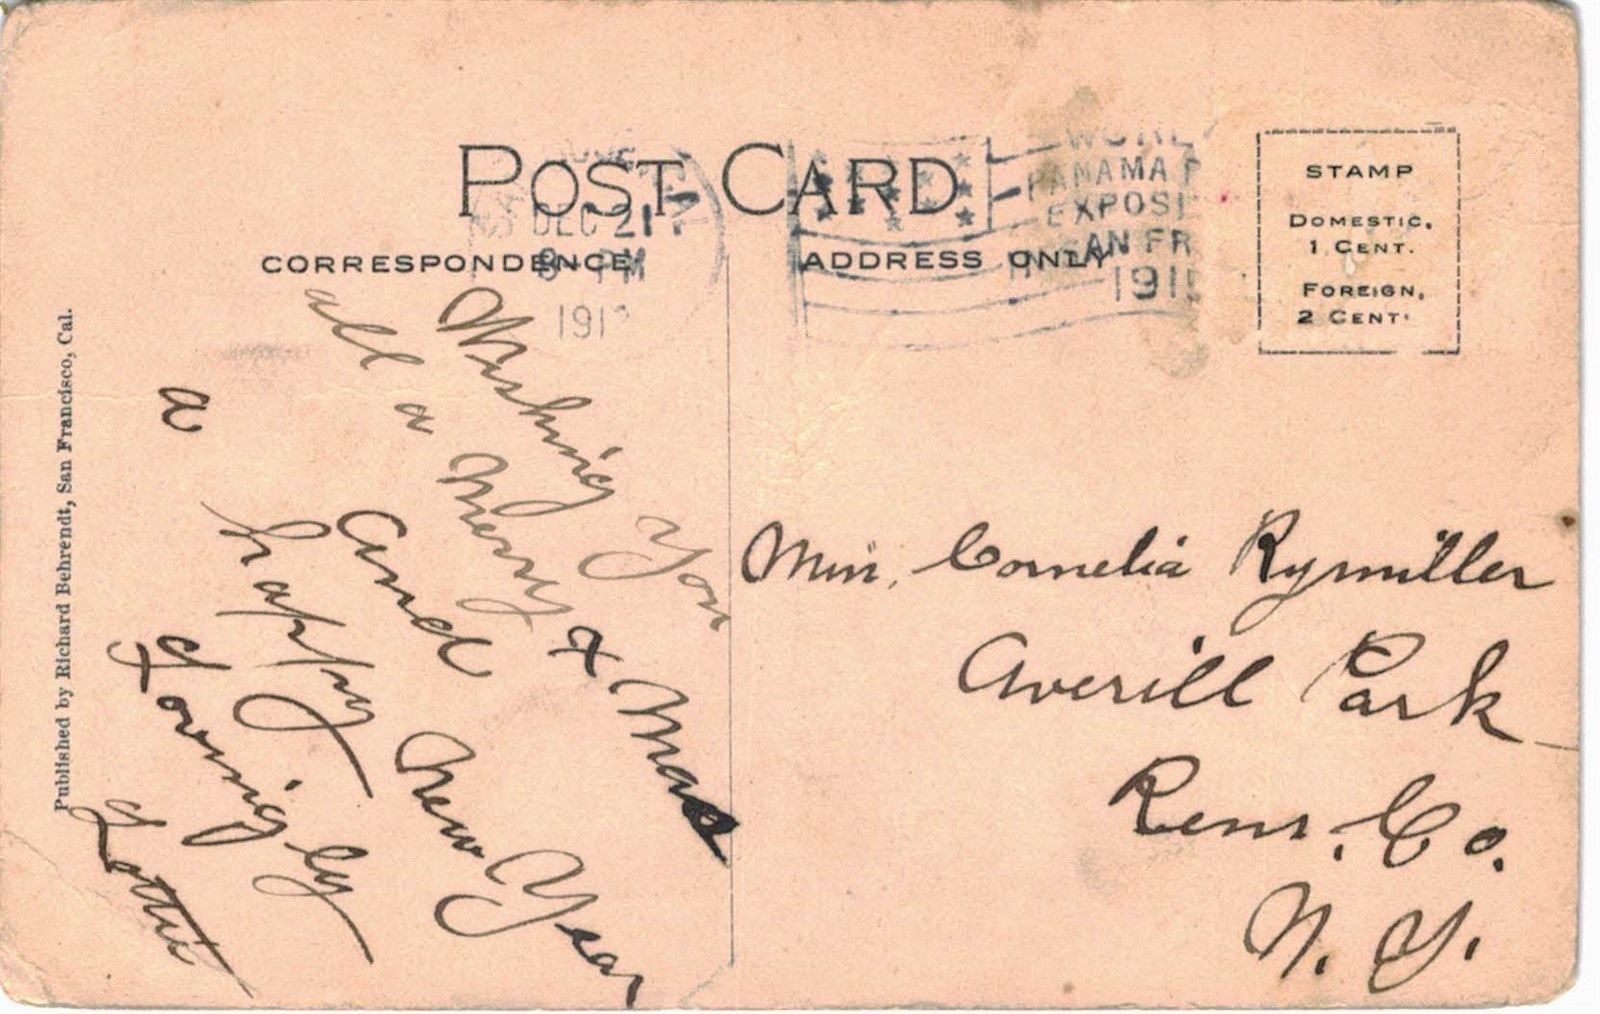 POST CARD
CORRESPONDENCE
ADDRESS ONLY
STAMP
DOMESTIC,
1 CENT.
FOREIGN,
2 CENT
DEC 21
PM
191
PANAMA P
EXPOSI
AN FR
191
Wishing You
all a Merry X Mas
and
a happy New Year
Lovingly
Lottie
Miss. Cornelia Rymiller
Averill Park
Renss. Co.
N. Y.
Published by Richard Behrendt, San Francisco, Cal.